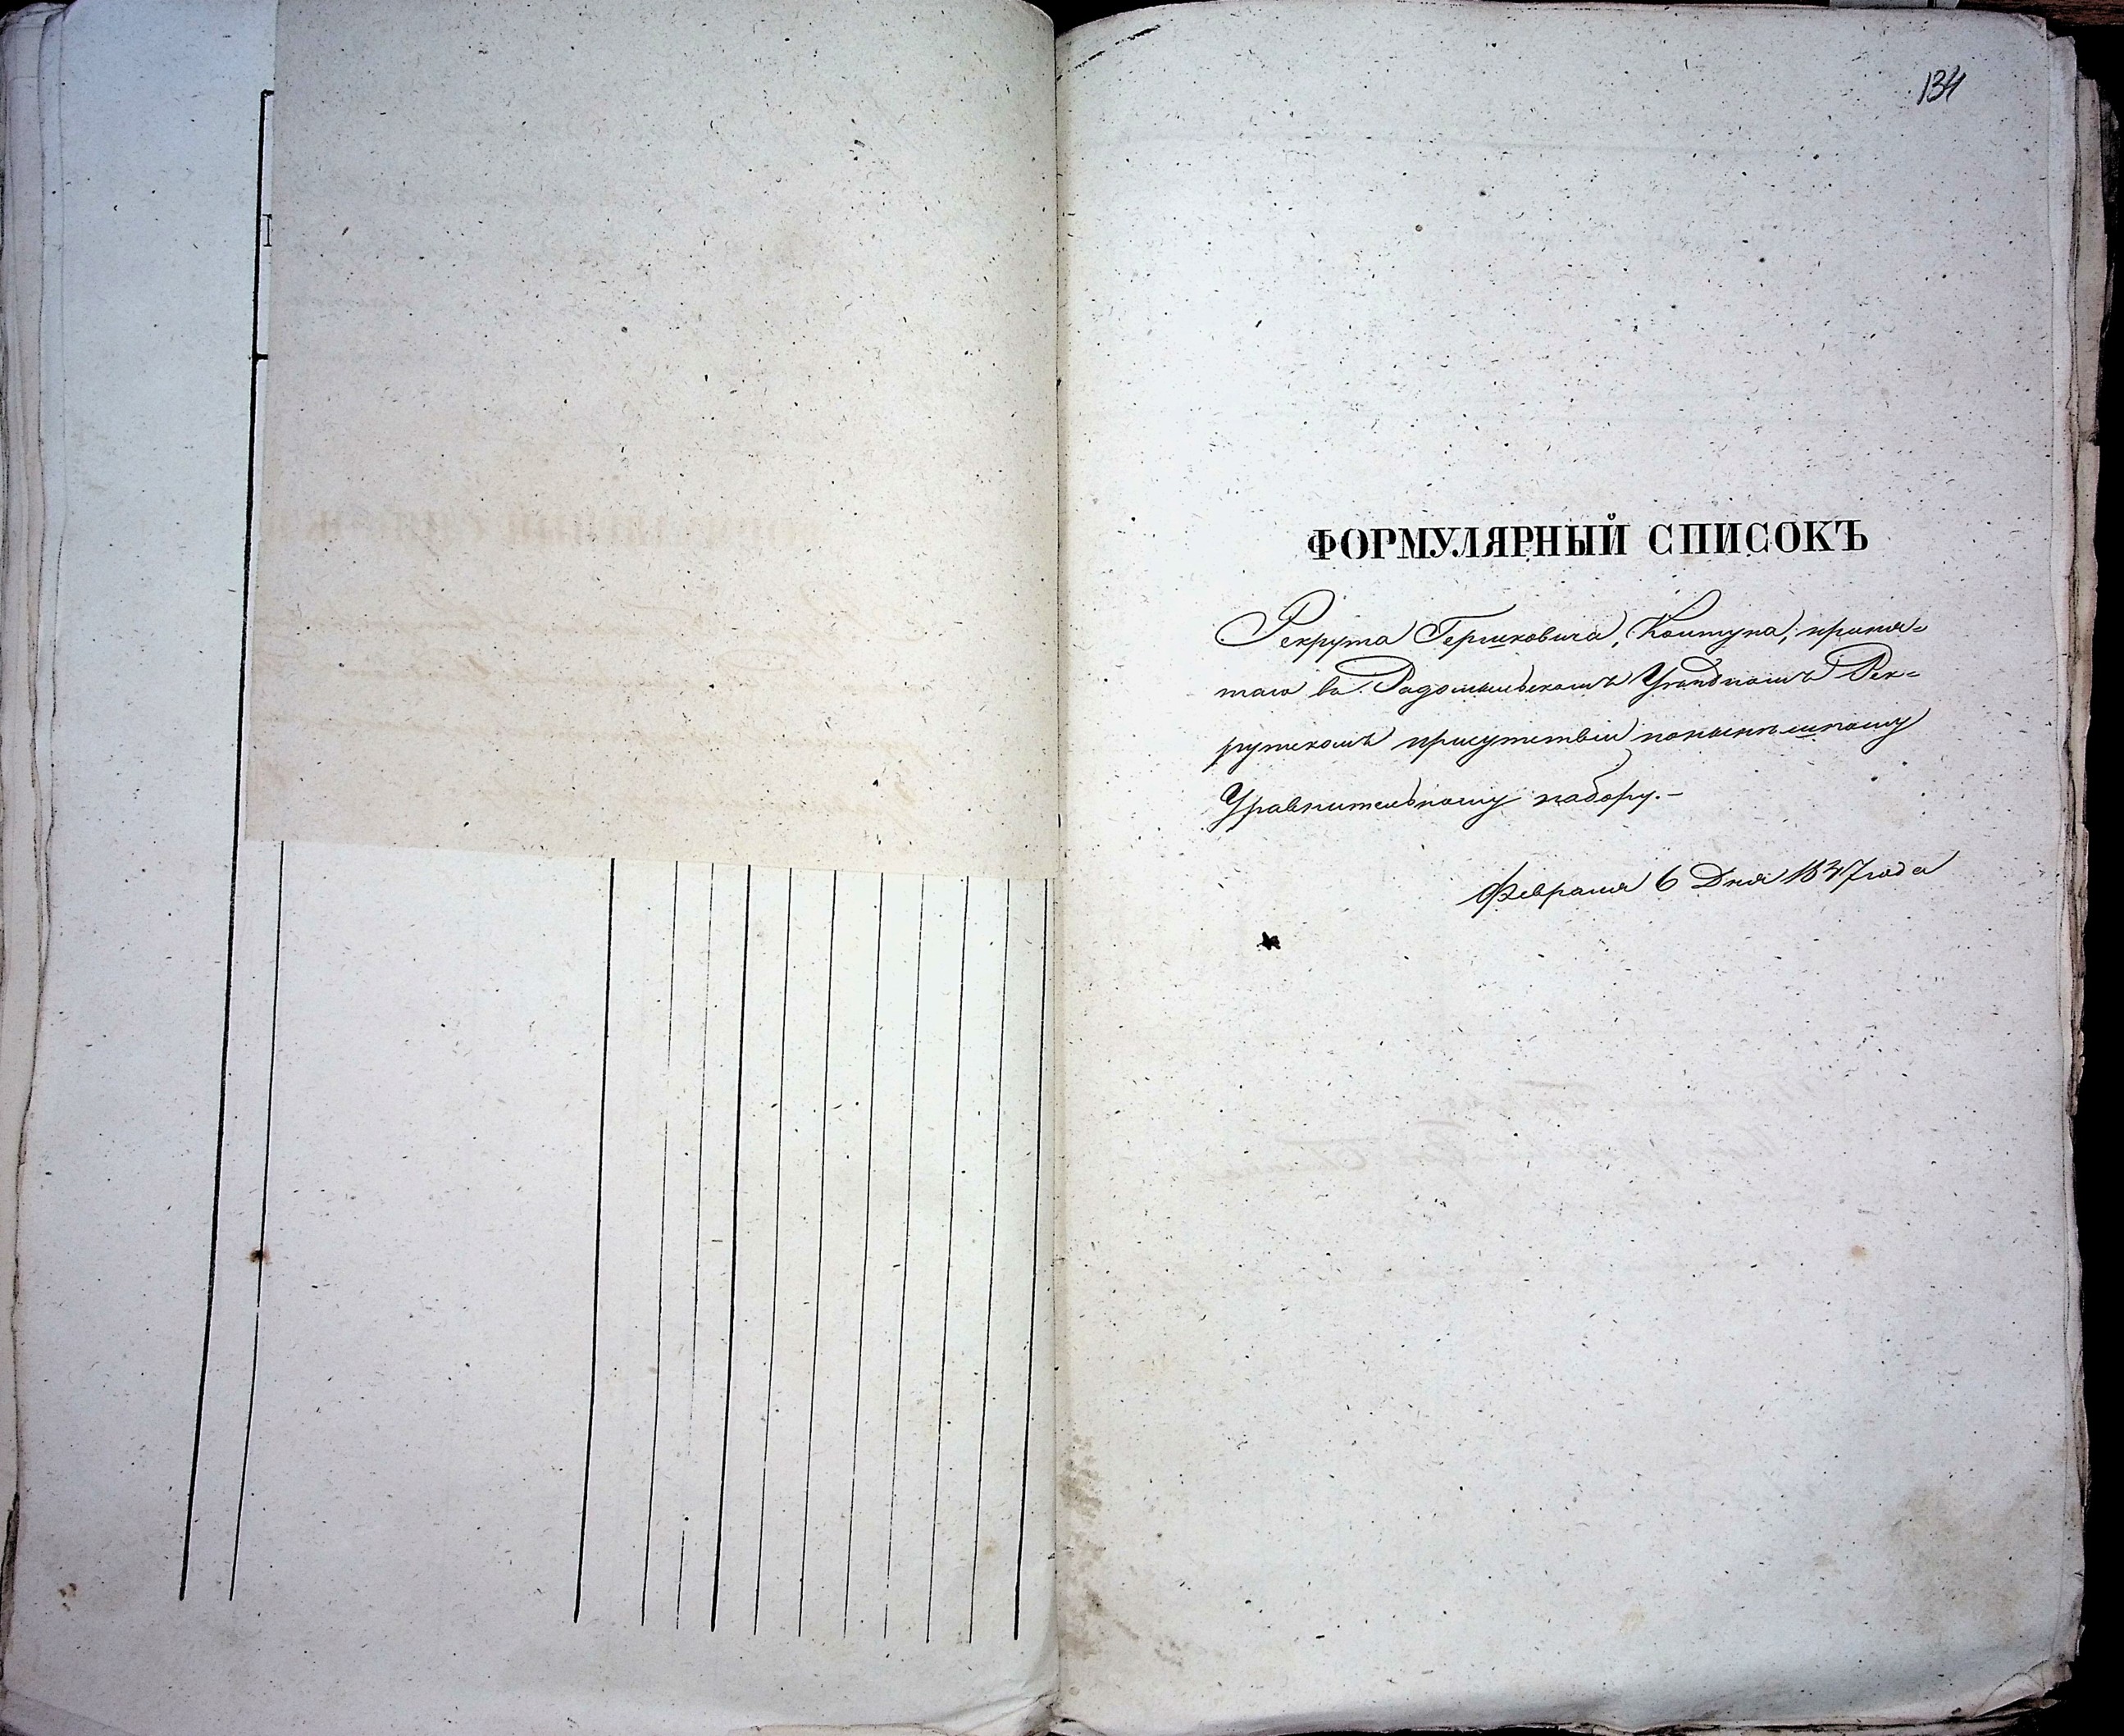 134
ФОРМУЛЯРНЫЙ СПИСОКЪ
Рекрута Гершковича, Ковтуна, приня=
таго въ Радомысльскомъ Уѣздномъ Рек=
рутскомъ присутствіи понынѣшному
Уравнительному набору.-
Февраля 6 Дня 1847 года